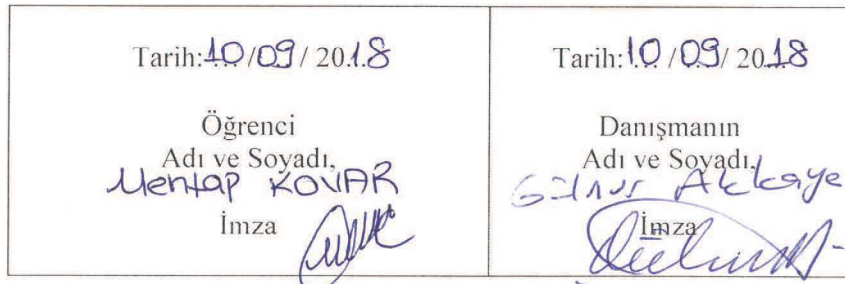 Tarih: 10/09/2018
Öğrenci
Adı ve Soyadı,
KOVAR
İmza
Tarih: 10/09/2018
Danışmanın
Adı ve Soyadı,
Gülnur Akkaya
İmza